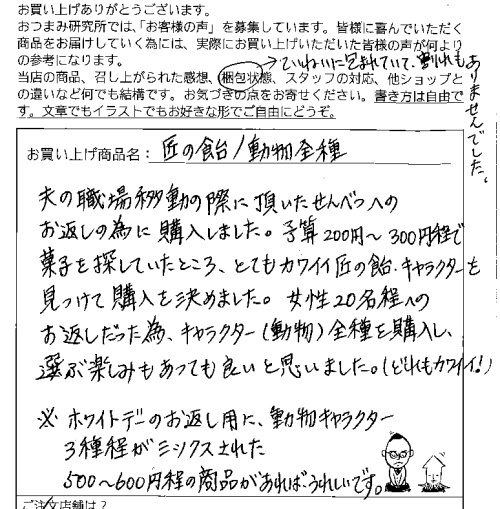 お買い上げありがとうございます。
おつまみ研究所では、「お客様の声」を募集しています。皆様に喜んでいただく
商品をお届けしていく為には、実際にお買い上げいただいた皆様の声が何より
の参考になります。
→ていねいに包まれていて、割れも
ありませんでした。
当店の商品、召し上がられた感想、梱包状態、スタッフの対応、他ショップと
の違いなど何でも結構です。お気づきの点をお寄せください。書き方は自由で
す。文章でもイラストでもお好きな形でご自由にどうぞ。
お買い上げ商品名：匠の飴/動物全種
夫の職場移動の際に頂いたせんべつへの
お返しの為に購入しました。予算200円～300円程で
菓子を探していたところ、とてもカワイイ匠の飴・キャラクターを
見つけて購入を決めました。女性20名程への
お返しだった為、キャラクター(動物)全種を購入し、
選ぶ楽しみもあっても良いと思いました。(どれもカワイイ!)
※ホワイトデーのお返し用に、動物キャラクター
3種程がミックスされた
500～600円程の商品があれば、うれしいです。
ご注文店舗は？